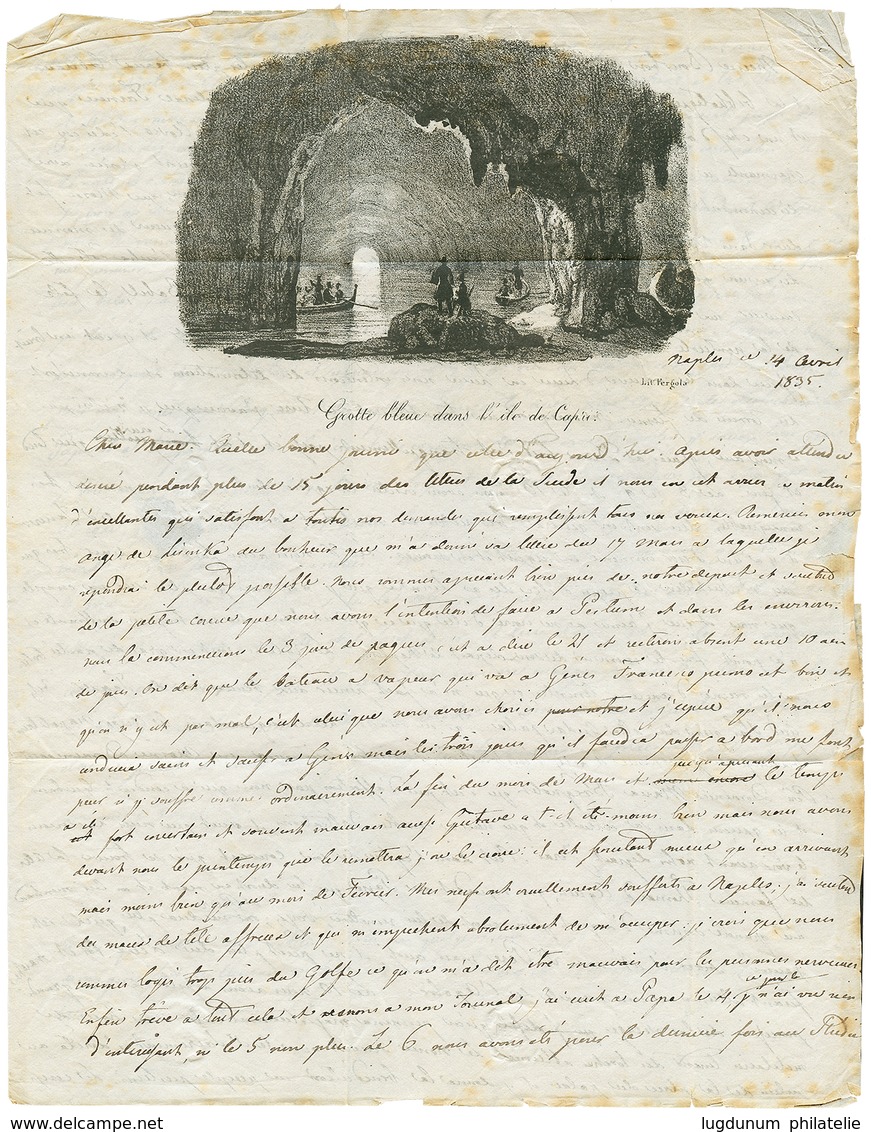 Naples ce 14 Avril
1835.
Lit Pergola
Grotte bleue dans l'île de Capri.
Cher Marie. Quelle bonne journée que celle d'aujourd'hui. après avoir attendu
désiré pendant plus de 15 jours des lettres de la Suède il nous en est arrivé ce matin
d'excellentes qui satisfont a toutes nos demandes qui remplissent tous nos voeux. Remerciés mon
ange de du bonheur que m'a donné sa lettre du 17 Mars a laquelle je
repondrai le plutot possible. Nous sommes apresent bien près de notre depart et surtout
de la petite course que nous avons l'intention de faire a Pestum et dans les environs.
nous la commencerons le 3 jour de paques c'est a dire le 21 et resterons absent une 10 aine
de jours. On dit que le bateau a vapeur qui va a Gênes Francesco primo est bon et
qu'on n'y est pas mal, c'est celui que nous avons choisis pour notre et j'espère qu'il nous
conduira sains et saufs a Genes mais les trois jours qu'il faudra passer a bord me font
peur si j'y souffre comme ordinairement. La fin du mois de Mars et jusqu'apresent le temps
a été fort incertain et souvent mauvais aussi Gustave a t-il été moins bien mais nous avons
devant nous le printemps qui le remettra j'ose le croire: il est pourtant mieux qu'en arrivant
mais moins bien qu'au mois de Fevrier. Mes nerfs ont cruellement soufferts a Naples; j'ai surtout
des maux de tête affreux et qui m'empechent absolument de m'occuper. je crois que nous
sommes logés trop près du Golfe ce qu'on m'a dit etre mauvais pour les personnes nerveuses.
Enfin trève a tout cela et revenons a mon Journal j'ai ecrit a Papa le 4 ce jour là je n'ai vu rien
d'interessant, ni le 5 non plus. Le 6 nous avons été pour la dernière fois au
lugdunum philatelie